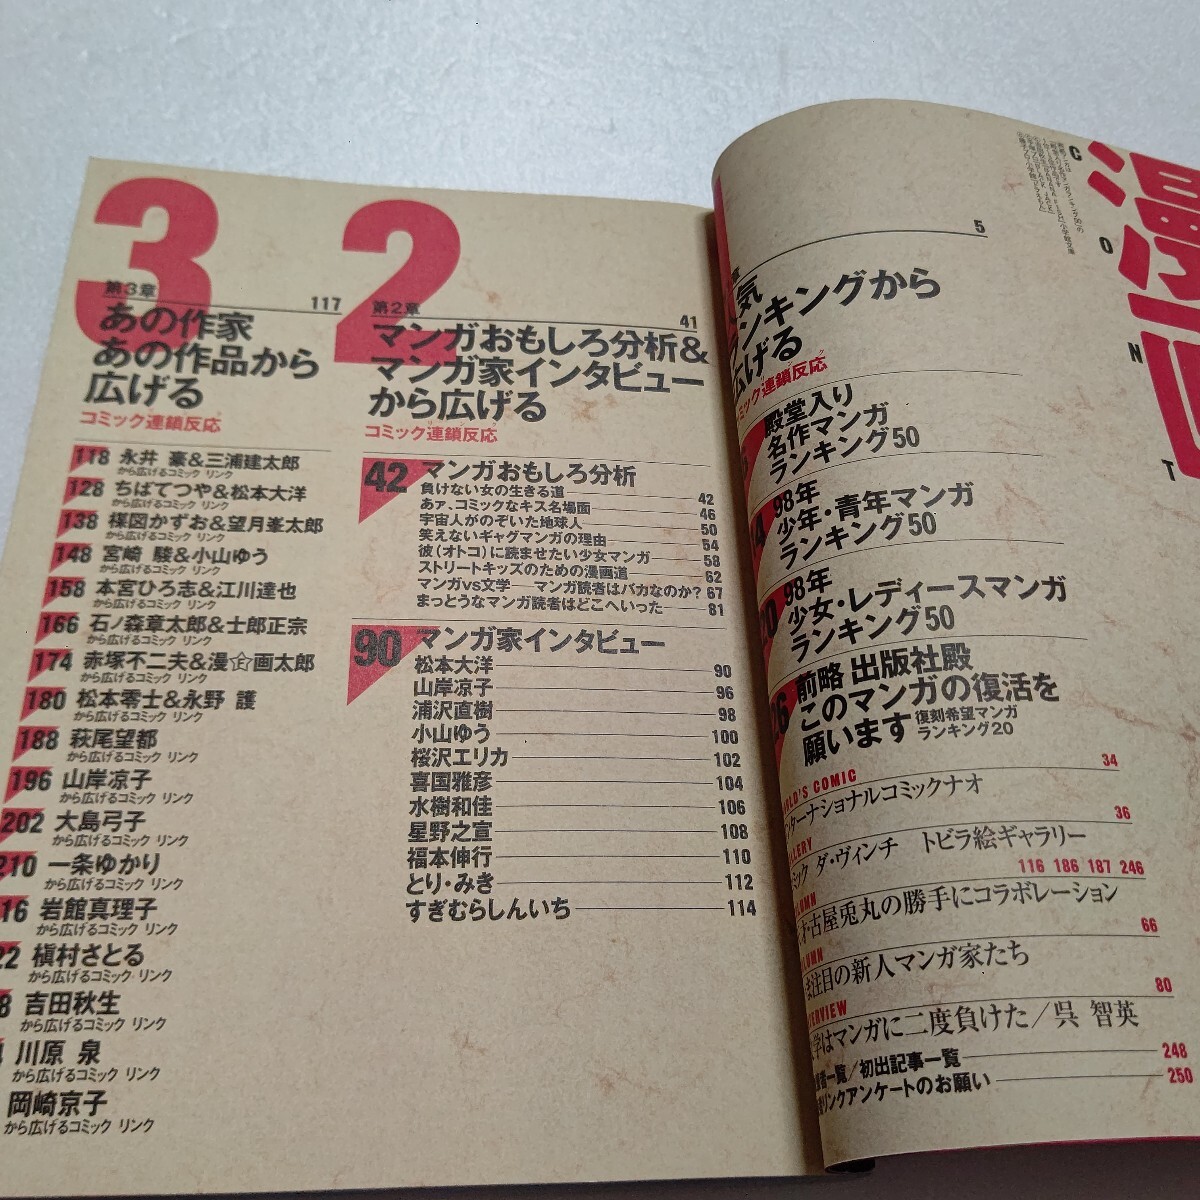 漫
CONT
5
気
ンキングから
広げる
ミック連鎖反応
殿堂入り
名作マンガ
ランキング50
98年
少年・青年マンガ
ランキング50
98年
少女・レディースマンガ
ランキング50
26
前略 出版社殿
このマンガの復活を
願います
復刻希望マンガ
ランキング20
34
RLD'S COMIC
ンターナショナルコミックナオ
36
LLERY
ミック ダ・ヴィンチ トビラ絵ギャラリー
116 186 187 246
LUMN
・古屋兎丸の勝手にコラボレーション
66
LUMN
注目の新人マンガ家たち
80
TERVIEW
学はマンガに二度負けた/呉 智英
者一覧/初出記事一覧 248
リンクアンケートのお願い 250
2
第2章
41
マンガおもしろ分析&
マンガ家インタビュー
から広げる
コミック連鎖反応
リンク
42 マンガおもしろ分析
負けない女の生きる道 42
あァ、コミックなキス名場面 46
宇宙人がのぞいた地球人 50
笑えないギャグマンガの理由 54
彼(オトコ)に読ませたい少女マンガ 58
ストリートキッズのための漫画道 62
マンガvs文学──マンガ読者はバカなのか? 67
まっとうなマンガ読者はどこへいった 81
90 マンガ家インタビュー
松本大洋 90
山岸凉子 96
浦沢直樹 98
小山ゆう 100
桜沢エリカ 102
喜国雅彦 104
水樹和佳 106
星野之宣 108
福本伸行 110
とり・みき 112
すぎむらしんいち 114
3
第3章
117
あの作家
あの作品から
広げる
コミック連鎖反応
リンク
118 永井 豪&三浦建太郎
から広げるコミック リンク
128 ちばてつや&松本大洋
から広げるコミック リンク
138 楳図かずお&望月峯太郎
から広げるコミック リンク
148 宮崎 駿&小山ゆう
から広げるコミック リンク
158 本宮ひろ志&江川達也
から広げるコミック リンク
166 石ノ森章太郎&士郎正宗
から広げるコミック リンク
174 赤塚不二夫&漫☆画太郎
から広げるコミック リンク
180 松本零士&永野 護
から広げるコミック リンク
188 萩尾望都
から広げるコミック リンク
196 山岸凉子
から広げるコミック リンク
202 大島弓子
から広げるコミック リンク
210 一条ゆかり
から広げるコミック リンク
16 岩館真理子
から広げるコミック リンク
22 槇村さとる
から広げるコミック リンク
8 吉田秋生
から広げるコミック リンク
川原 泉
から広げるコミック リンク
岡崎京子
から広げるコミック リンク